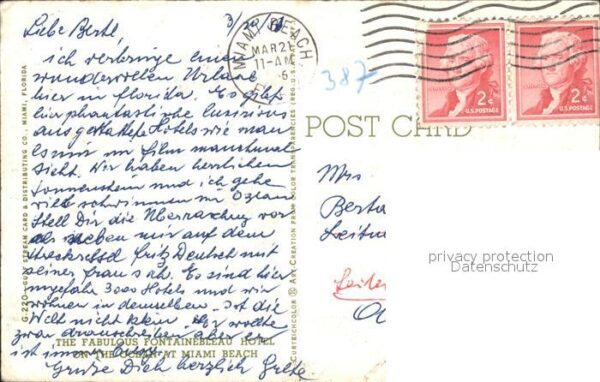 3/20 61
Liebe Bertl,
ich verbringe einen
wundervollen Urlaub
hier in Florida. Es gibt
hier phantastische luxuriös
ausgestattete Hotels wie man
es nur im Film manchmal
sieht. Wir haben herrlichen
Sonnenschein und ich gehe
viel schwimmen im Ozean
Stell Dir die Überraschung vor
als neben mir auf dem
Streckstuhl Fritz Deutsch mit
seiner Frau sah. Es sind hier
ungefähr 3000 Hotels und wir
wohnen in demselben. Ist die
Welt nicht klein. Er wollte
zwar dranschreiben aber er
ist immer busy.
Grüsse Dich herzlich Grete
THE FABULOUS FONTAINEBLEAU HOTEL
ON THE OCEAN AT MIAMI BEACH
G-220—GULF STREAM CARD & DISTRIBUTING CO., MIAMI, FLORIDA
MIAMI BEACH
MAR 21
11-AM
387
2¢
U.S. POSTAGE
2¢
U.S. POSTAGE
POST CARD
Mrs
Berta
privacy protection
Datenschutz